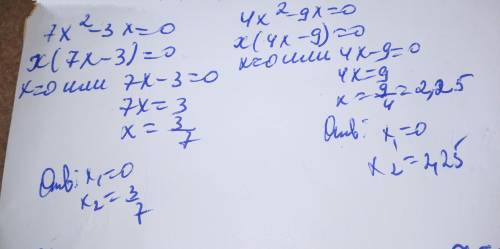 7x²-3x=0
x(7x-3)=0
x=0 или 7x-3=0
7x=3
x=3/7
Отв: x₁=0
x₂=3/7
4x²-9x=0
x(4x-9)=0
x=0 или 4x-9=0
4x=9
x=9/4=2,25
Отв: x₁=0
x₂=2,25